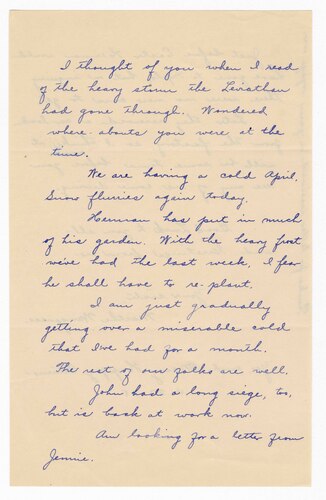 I thought of you when I read
of the heavy storm the Leviathan
had gone through. Wondered
where-abouts you were at the
time.
We are having a cold April.
Snow flurries again today.
Herman has put in much
of his garden. With the heavy frost
weve had the last week, I fear
he shall have to re-plant.
I am just gradually
getting over a miserable cold
that I've had for a month.
The rest of our folks are well.
John had a long siege, to,
but is back at work now.
Am looking for a letter from
Jennie.